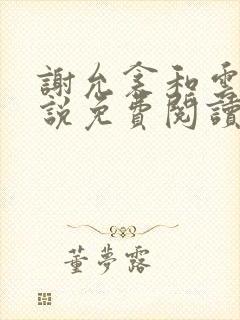 謝允衾和雲
說免費閱讀
董夢露